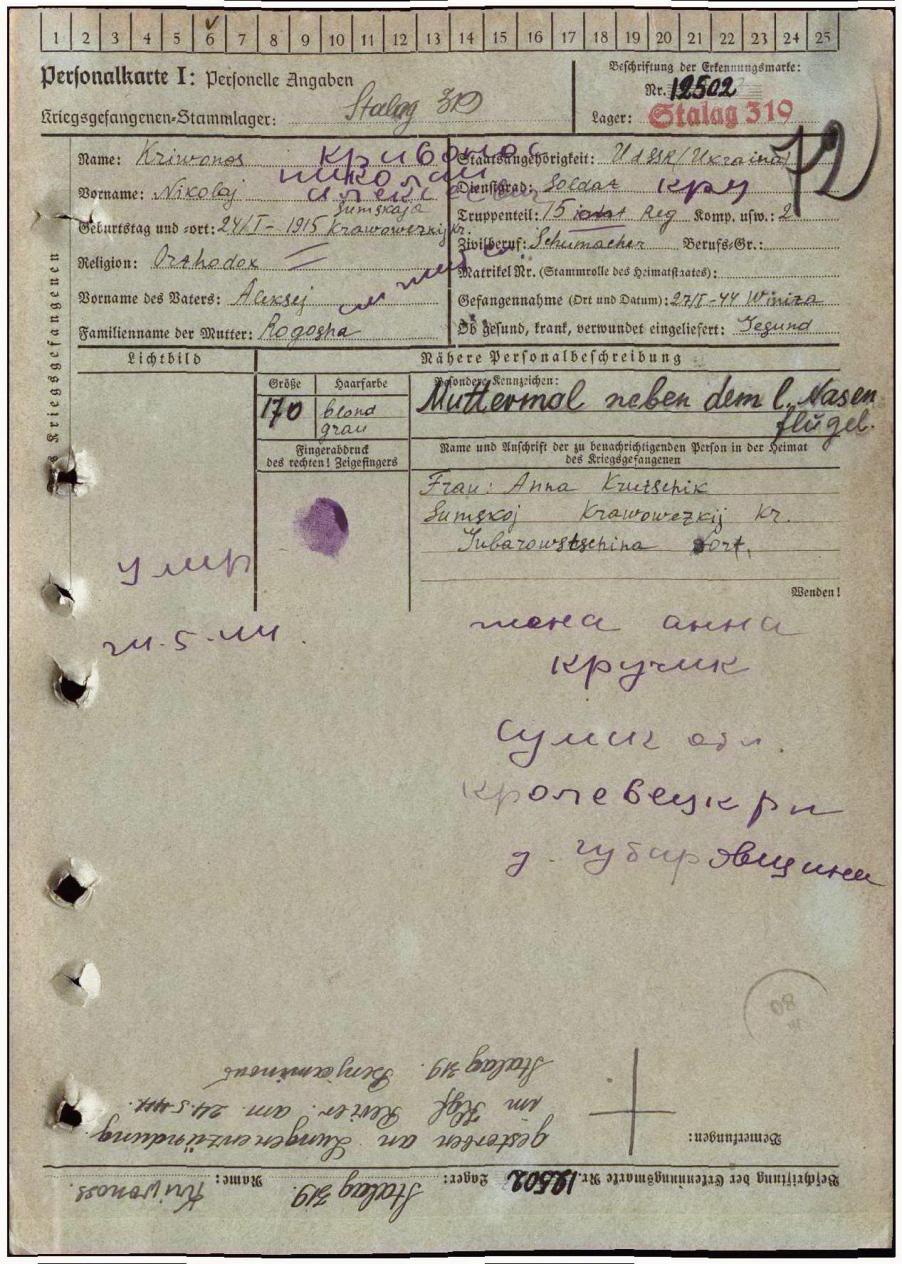 1 2 3 4 5 6 7 8 9 10 11 12 13 14 15 16 17 18 19 20 21 22 23 24 25
Personalkarte I: Personelle Angaben
Kriegsgefangenen-Stammlager: Stalag 319
Beschriftung der Erkennungsmarke:
Nr. 12502
Lager: Stalag 319
72
Name: Kriwonos
Кривонос
Vorname: Nikolaj
николай
алексеевич
Geburtstag und -ort: 24/I - 1915 Sumskaja
Krawowezkij kr.
Religion: Orthodox
Vorname des Vaters: Aleksej
Familienname der Mutter: Rogosha
Staatsangehörigkeit: UdSSR/Ukraina
Dienstgrad: Soldat кру
Truppenteil: 15 Reg Komp. usw.: 2
Zivilberuf: Schumacher Berufs-Gr.:
Matrikel Nr. (Stammrolle des Heimatstaates):
Gefangennahme (Ort und Datum): 27/I-44 Winiza
Ob gesund, krank, verwundet eingeliefert: Gegund
des Kriegsgefangenen
Lichtbild
Nähere Personalbeschreibung
Größe Haarfarbe
170 blond
grau
Besondere Kennzeichen:
Muttermal neben dem l. Nasen
flügel.
Fingerabdruck
des rechten! Zeigefingers
Name und Anschrift der zu benachrichtigenden Person in der Heimat
des Kriegsgefangenen
Frau: Anna Krutschik
Sumskoj Krawowezkij kr.
Gubarowstschina Dorf.
Wenden!
умр
24.5.44.
жена анна
кручик
Сумск обл.
кролевецк рн
д. губаровщина
08
Beschriftung der Erkennungsmarke Nr. 12502 Lager: Stalag 319. Name: Kriwonoss.
Bemerkungen:
gestorben an Lungenentzündung
im Kgf. Revier am 24.5.44.
Stalag 319.